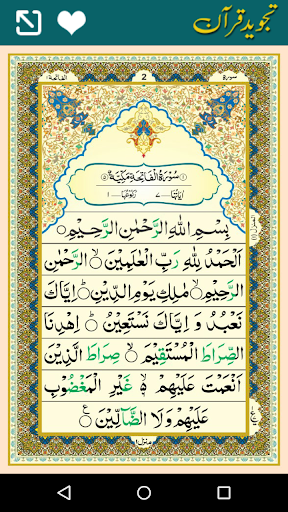 تجوید قرآن
سورة
2
الفاتحة ١
سُوْرَةُ الْفَاتِحَةِ مَكِّيَّةٌ
اٰيَاتُهَا ٧ رُكُوْعُهَا ١
بِسْمِ اللّٰهِ الرَّحْمٰنِ الرَّحِيْمِ
اَلْحَمْدُ لِلّٰهِ رَبِّ الْعٰلَمِيْنَ ۙ الرَّحْمٰنِ
الرَّحِيْمِ ۙ مٰلِكِ يَوْمِ الدِّيْنِ ؕ اِيَّاكَ
نَعْبُدُ وَ اِيَّاكَ نَسْتَعِيْنُ ؕ اِهْدِنَا
الصِّرَاطَ الْمُسْتَقِيْمَ ۙ صِرَاطَ الَّذِيْنَ
اَنْعَمْتَ عَلَيْهِمْ ۙ غَيْرِ الْمَغْضُوْبِ
عَلَيْهِمْ وَلَا الضَّآلِّيْنَ
منزل ١